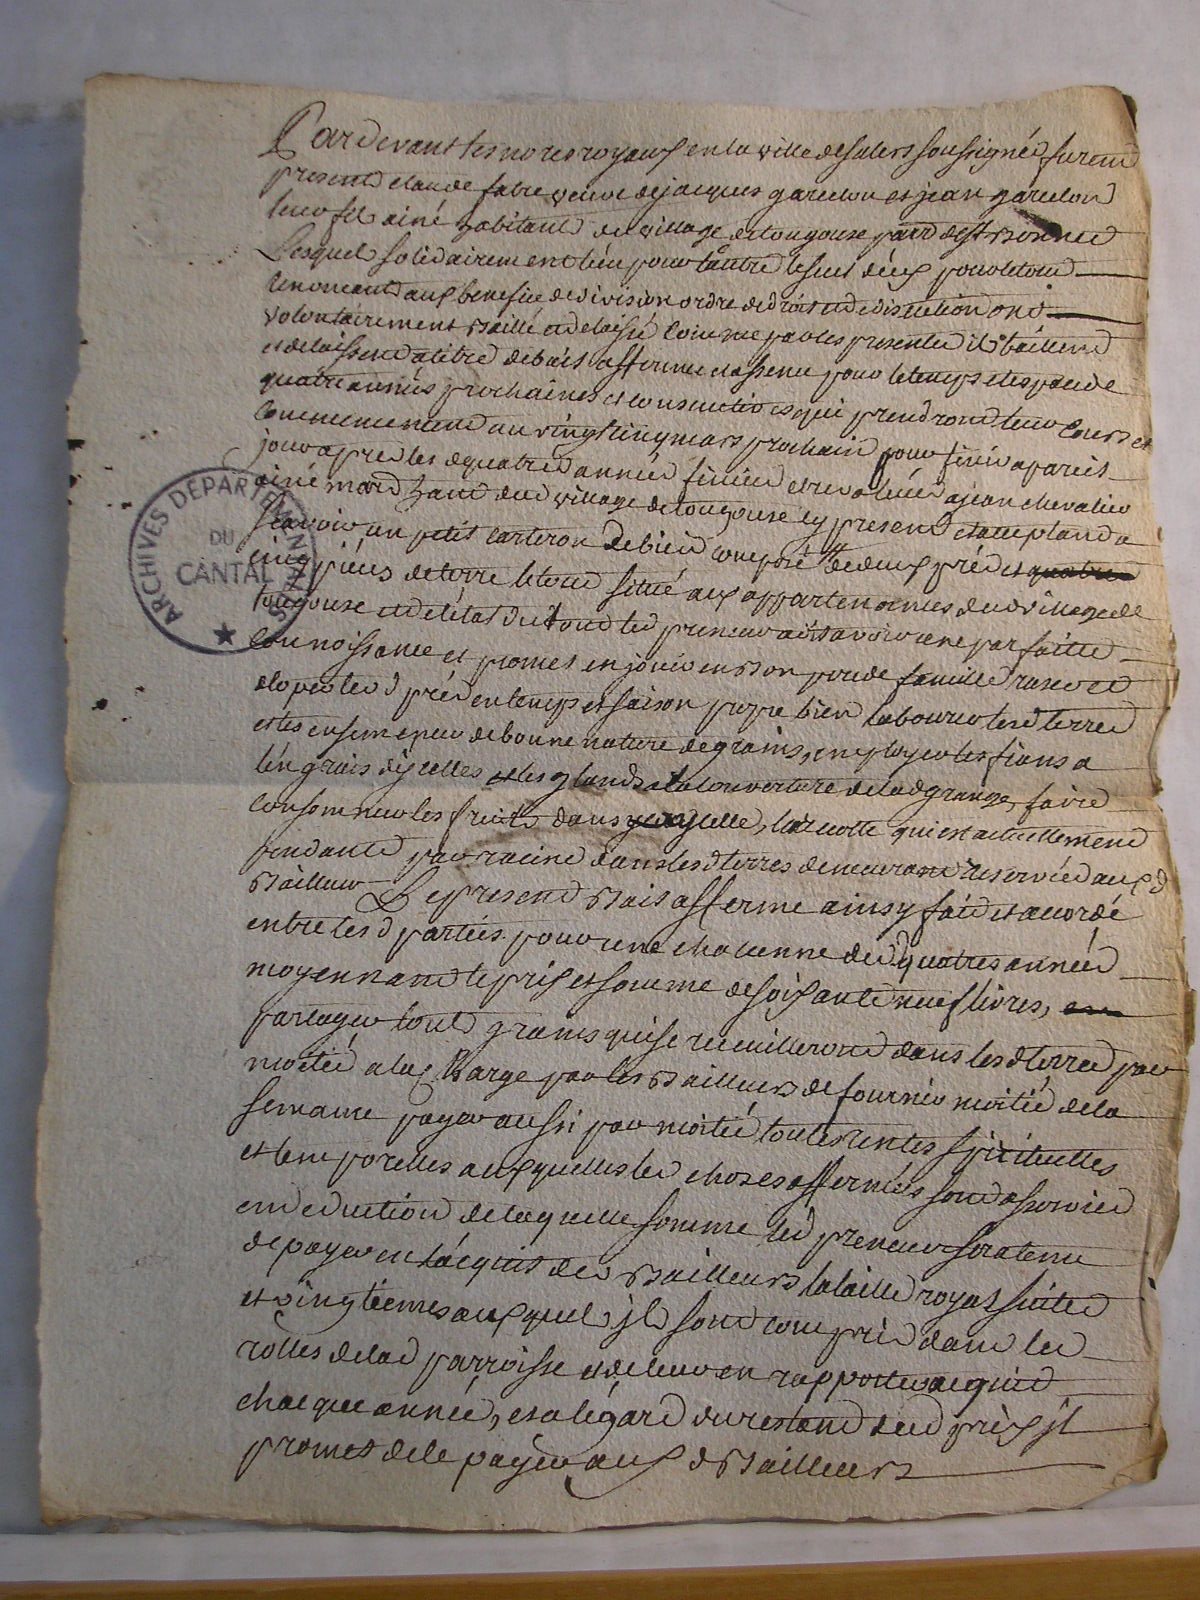 Pardevant les no.res royaux en la ville de salers soussignés furent
present claude fabre veuve de jacques garcelon et jean garcelon
leur fil ainé habitants du village de tougouse parr.e de st Bonnet
Lesquels solidairement l'un pour l'autre le seul d'eux pour le tout
renoncant aux benefice de division ordre de droit et de discution ont
volontairement Baillé et delaissé comme par les presentes ils baillent
et delaissent a titre de bail afferme et assense pour le temps et espace de
quatre années prochaines et consecutives qui prendront leur cours et
commencement au vingt cinq mars prochain pour finir a pareil
jour apres les d quatre années finies et revolues a jean chevalier
ainé mard hant dud village de tougouse cy present et acceptant a
scavoir un petit carteron de bien composé de deux prés et quatre
cinq pieces de terre le tout situé aux appartenances dud village de
tougouse et de l'état du tout led preneur a dit avoir une parfaitte
connoissance et promet en jouir en Bon pere de famille raser et
cloper les d prés en temps et saison propre bien labourer les d terres
et les ensemencer de bonne nature de grains, employer les fians a
l'engrais d'ycelles et les glands a la couverture de lad grange, faire
consommer les fruits dans ycelle, la recolte qui est actuellement
pendante par racine dans les d terres demeurant reservée aux d
Bailleur
Le present Bail afferme ainsy fait et accordé
entre les d parties pour une chacunne des d quatres années
moyennant le prix et somme de soixante neuf livres,
partager tout grains qui se recuilleront dans les d terres par
moitié a la charge par les Bailleurs de fournir moitié de la
semance payer aussi par moitié toutes rentes spirituelles
et temporelles auxquelles les choses affermées sont asservies
en deduction de laquelle somme led preneur sera tenu
de payer en l'acquit des Bailleurs la taille royal suites
et vingtiemes auxquel jls sont compris dans les
rolles de lad parroisse et de leur en rapporter acquit
chacque année, et a l'égard du restant dud prix jl
promet de le payer aux d Bailleurs
ARCHIVES DÉPARTEMENTALES
DU
CANTAL